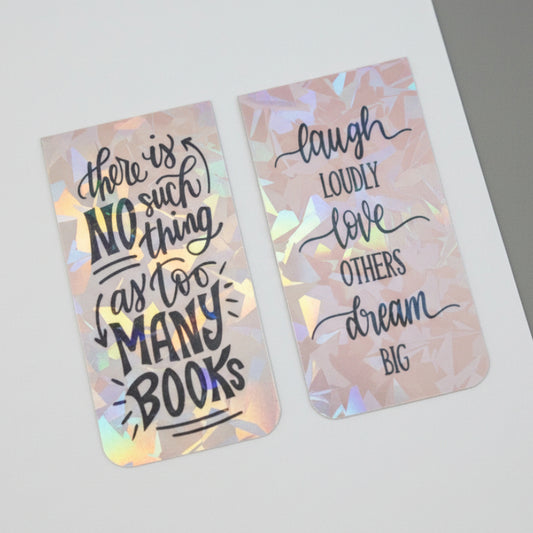 there is
NO such
thing
as too
MANY
BOOKS
laugh
LOUDLY
love
OTHERS
dream
BIG